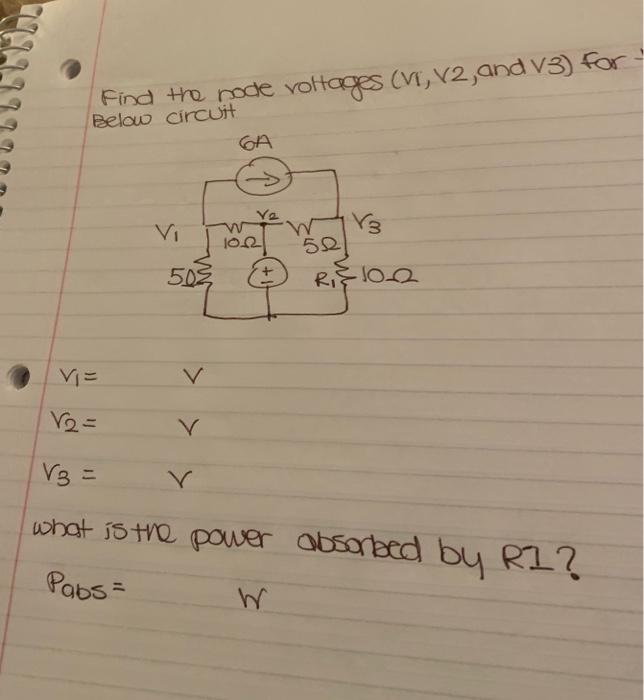 Find the node voltages (V1, V2, and V3) for
Below circuit
6A
V1
V2
V3
10Ω
5Ω
5Ω
+
R1
10Ω
V1 = V
V2 = V
V3 = V
what is the power absorbed by R1?
Pabs = W